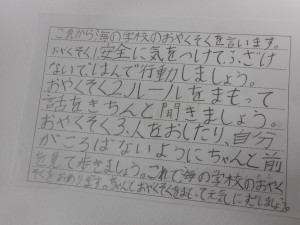 これから海の学校のおやくそくを言います。
おやくそく1、安全に気をつけて、ふざけ
ないではんで行動しましょう。
おやくそく2、ルールをまもって
話をきちんと聞きましょう。
おやくそく3、人をおしたり、自分
がころばないようにちゃんと前
を見て歩きましょう。これで海の学校のおやく
そくをおわります。ちゃんとおやくそくをまもって元気にすごしましょう。